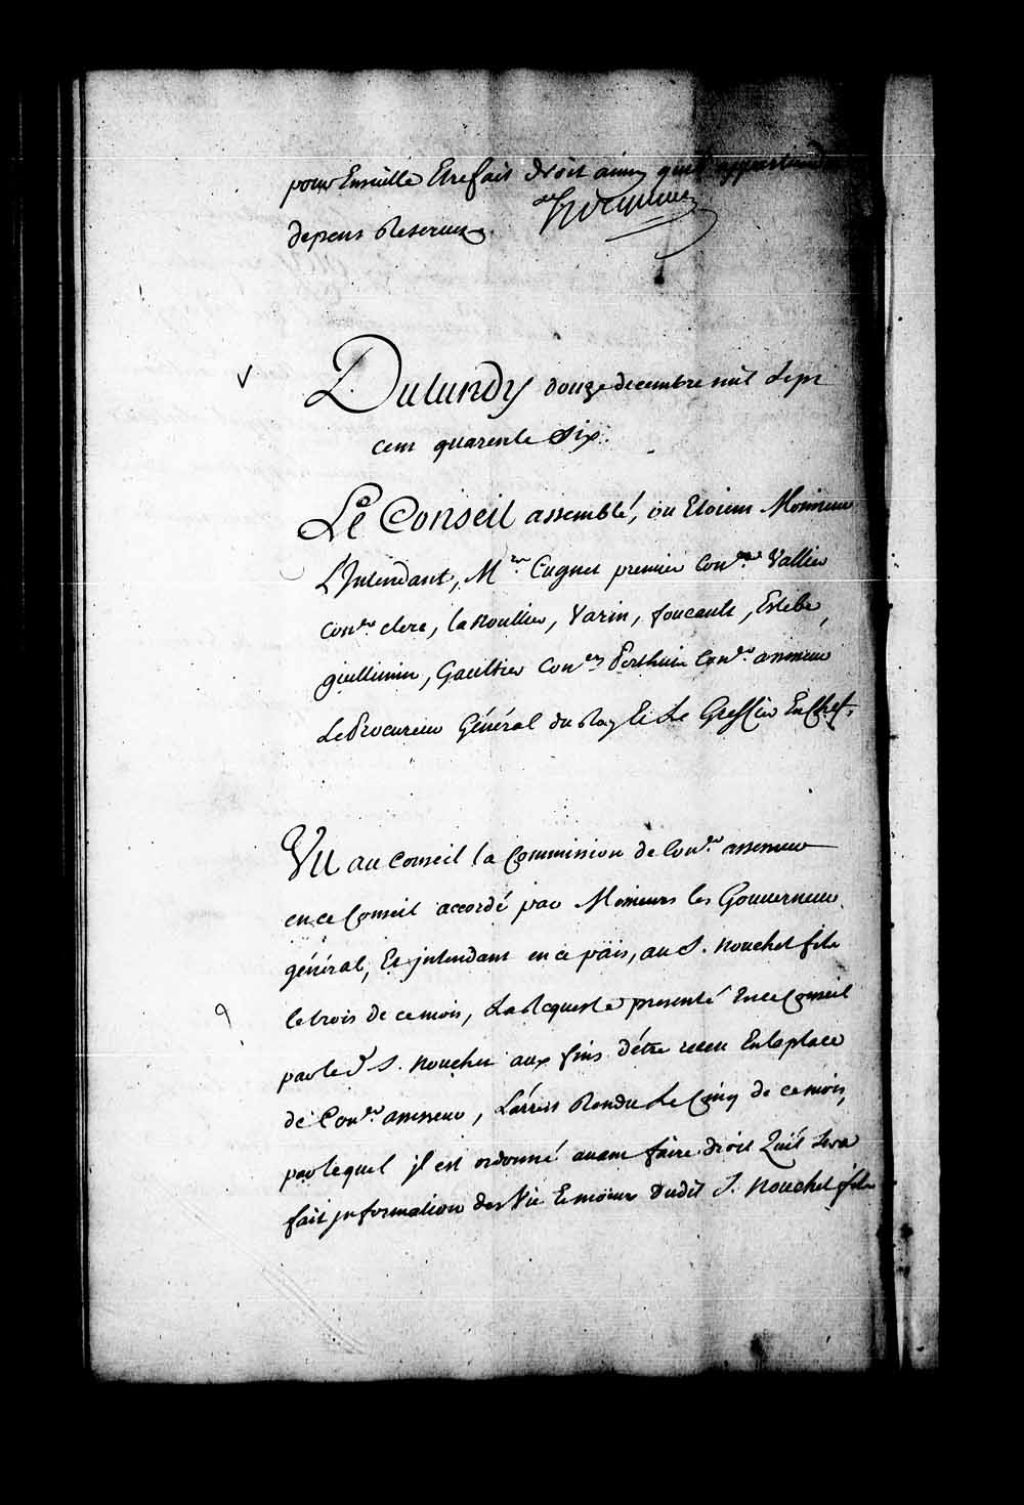 pour Ensuitte Etre fait droit ainsy quil appartiendra
depens Reservez. hocquart
Du lundy douze decembre mil Sept
cent quarente Six.
Le Conseil assemblé, ou Etoient Monsieur
L'Intendant, Mrs. Cugnet premier Coner. Vallier
Coner. clerc, la Roullier, Varin, foucault, Estebe,
guillimin, Gaultier Coners Perthuis Coner. assesseur
Le Procureur Général du Roy Et Le Greffier En Chef,
Vu au Conseil la Commission de Coner. assesseur
en ce Conseil accordé par Messieurs les Gouverneur
général, Et jntendant en ce païs, au S. Nouchet fils
le trois de ce mois, La Requeste presenté En ce Conseil
par led. S. Nouchet aux fins d'être receu En la place
de Coner. assesseur, L'arrest Rendu Le Cinq de ce mois,
par lequel jl est ordonné avant faire droit Quil Sera
fait jnformation des Vie Et mœurs dudit S. Nouchet fils